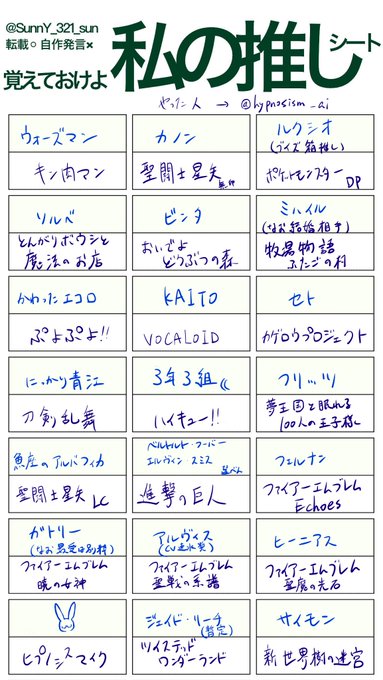 @SunnY_321_sun
転載○ 自作発言×
覚えておけよ
私の推しシート
やった人 → @hypnosism_ai
ウォーズマン
キン肉マン
カノン
聖闘士星矢
無印
ルクシオ
(ブイズ箱推し)
ポケットモンスター
DP
ソルベ
とんがりボウシと
魔法のお店
ビンタ
おいでよ
どうぶつの森
ミハイル
(なお結婚相手)
牧場物語
ふたごの村
かわったエコロ
ぷよぷよ!!
KAITO
VOCALOID
セト
カゲロウプロジェクト
にっかり青江
刀剣乱舞
3年3組
ハイキュー!!
フリッツ
夢王国と眠れる
100人の王子様
魚座のアルバフィカ
聖闘士星矢 LC
ベルトルト・フーバー
エルヴィン・スミス
進撃の巨人
フェルナン
ファイアーエムブレム
Echoes
ガトリー
ファイアーエムブレム
暁の女神
アルヴィス
ファイアーエムブレム
聖戦の系譜
ヒーニアス
ファイアーエムブレム
聖魔の光石
ヒプノシスマイク
ジェイド・リーチ
(暫定)
ツイステッド
ワンダーランド
サイモン
新世界樹の迷宮